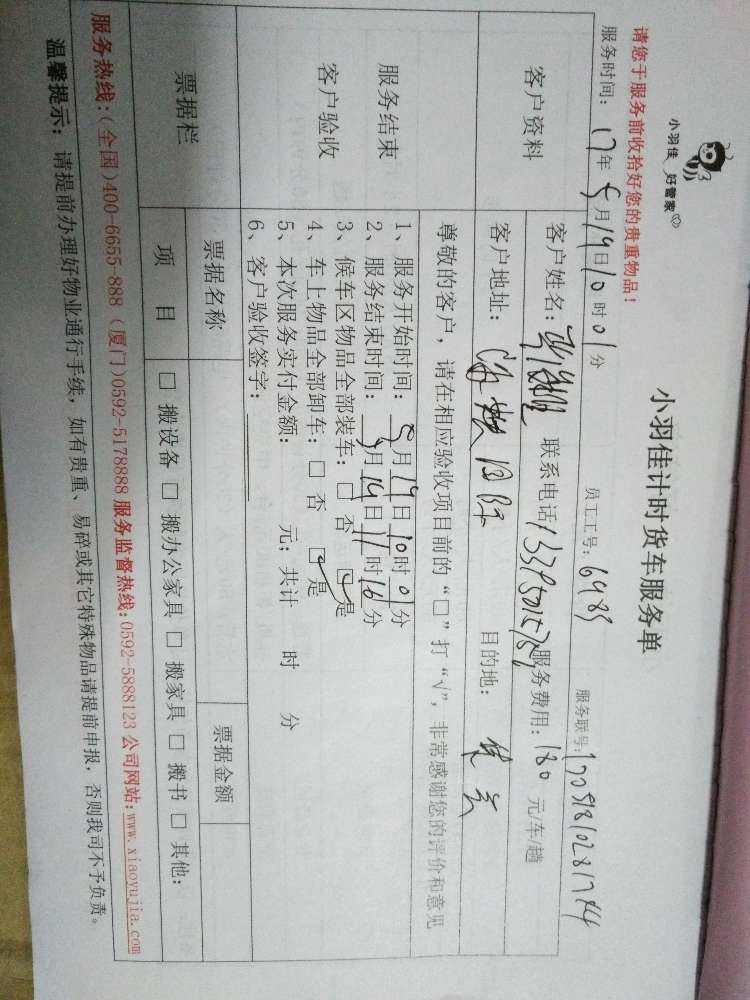 小羽佳 好管家
小羽佳计时货车服务单
请您于服务前收拾好您的贵重物品！
员工工号：6983
服务联号：17051810281744
服务时间：17年5月19日10时01分
客户资料
客户姓名： 联系电话 服务费用：180元/车/趟
客户地址： 国际 目的地：
尊敬的客户，请在相应验收项目前的“□”打“√”，非常感谢您的评价和意见
服务结束
客户验收
1、服务开始时间：5月19日10时01分
2、服务结束时间：5月19日11时16分
3、候车区物品全部装车：□ 否 ☑是
4、车上物品全部卸车：□ 否 ☑是
5、本次服务实付金额： 元；共计 时 分
6、客户验收签字：
票据栏
票据名称
票据金额
项 目
□ 搬设备 □ 搬办公家具 □ 搬家具 □ 搬书 □ 其他：
服务热线：(全国)400-6655-888 (厦门)0592-5178888 服务监督热线：0592-5888123 公司网站：www.xiaoyujia.com
温馨提示：请提前办理好物业通行手续，如有贵重、易碎或其它特殊物品请提前申报，否则我司不予负责。